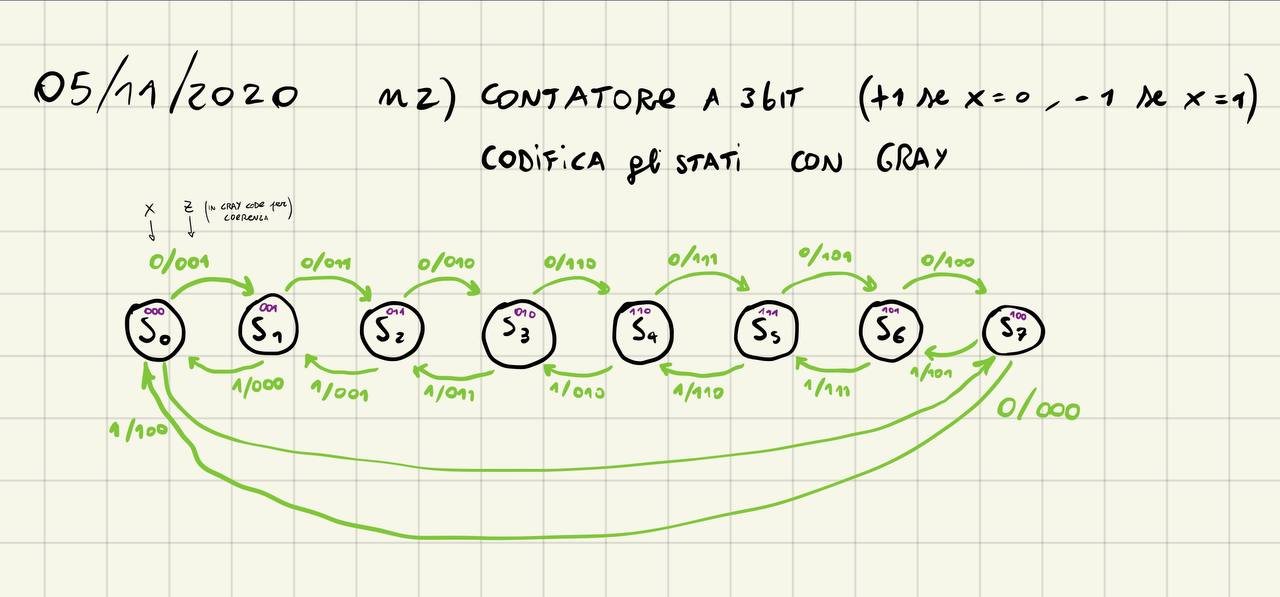 05/11/2020 n2) CONTATORE A 3bIT (+1 se x=0, -1 se x=1)
CODIFICA gli STATI CON GRAY
X Z (IN GRAY CODE per
COERENZA)
0/001 0/011 0/010 0/110 0/111 0/101 0/100
000 001 011 010 110 111 101 100
S0 S1 S2 S3 S4 S5 S6 S7
1/000 1/001 1/011 1/010 1/110 1/111 1/101
1/100 0/000